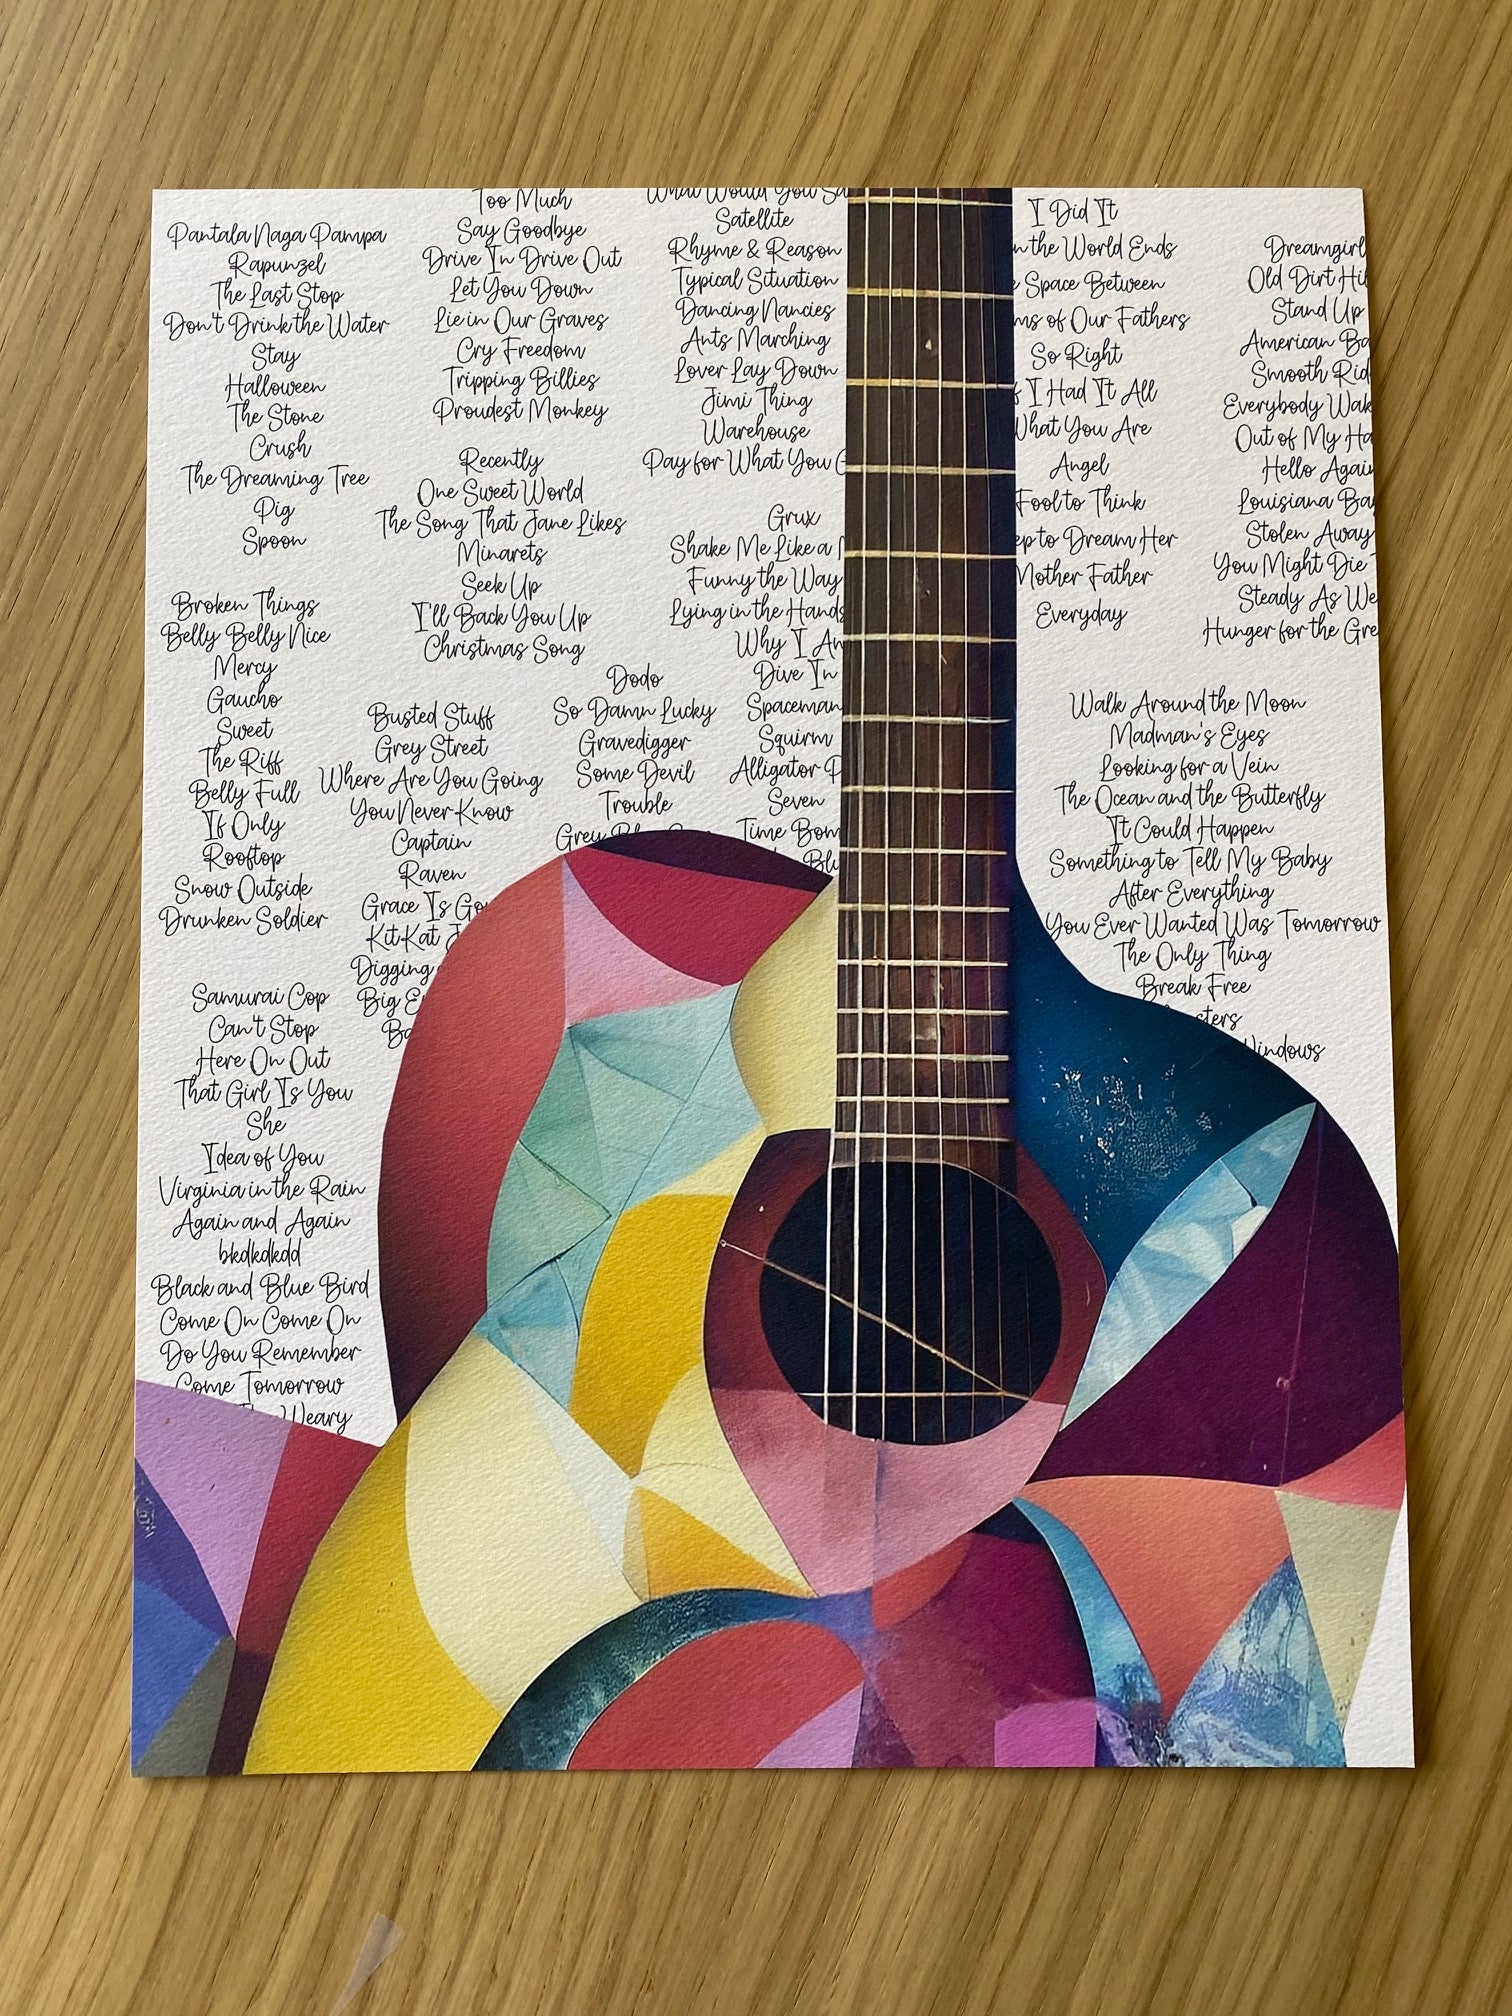 Pantala Naga Pampa
Rapunzel
The Last Stop
Don't Drink the Water
Stay
Halloween
The Stone
Crush
The Dreaming Tree
Pig
Spoon
Broken Things
Belly Belly Nice
Mercy
Gaucho
Sweet
The Riff
Belly Full
If Only
Rooftop
Snow Outside
Drunken Soldier
Samurai Cop
Can't Stop
Here On Out
That Girl Is You
She
Idea of You
Virginia in the Rain
Again and Again
bkdkdkdd
Black and Blue Bird
Come On Come On
Do You Remember
Come Tomorrow
Weary
Too Much
Say Goodbye
Drive In Drive Out
Let You Down
Lie in Our Graves
Cry Freedom
Tripping Billies
Proudest Monkey
Recently
One Sweet World
The Song That Jane Likes
Minarets
Seek Up
I'll Back You Up
Christmas Song
Busted Stuff
Grey Street
Where Are You Going
You Never Know
Captain
Raven
Grace Is Go
Kit Kat J
Digging
Big E
Ba
Dodo
So Damn Lucky
Gravedigger
Some Devil
Trouble
Grey
What Would You Sa
Satellite
Rhyme & Reason
Typical Situation
Dancing Nancies
Ants Marching
Lover Lay Down
Jimi Thing
Warehouse
Pay for What You G
Grux
Shake Me Like a M
Funny the Way
Lying in the Hands
Why I Am
Dive In
Spaceman
Squirm
Alligator P
Seven
Time Bom
Blu
I Did It
n the World Ends
e Space Between
ms of Our Fathers
So Right
f I Had It All
What You Are
Angel
Fool to Think
ep to Dream Her
Mother Father
Everyday
Dreamgirl
Old Dirt Hil
Stand Up
American Ba
Smooth Rid
Everybody Wak
Out of My Ha
Hello Again
Louisiana Bay
Stolen Away
You Might Die T
Steady As We
Hunger for the Gre
Walk Around the Moon
Madman's Eyes
Looking for a Vein
The Ocean and the Butterfly
It Could Happen
Something to Tell My Baby
After Everything
You Ever Wanted Was Tomorrow
The Only Thing
Break Free
sters
Windows